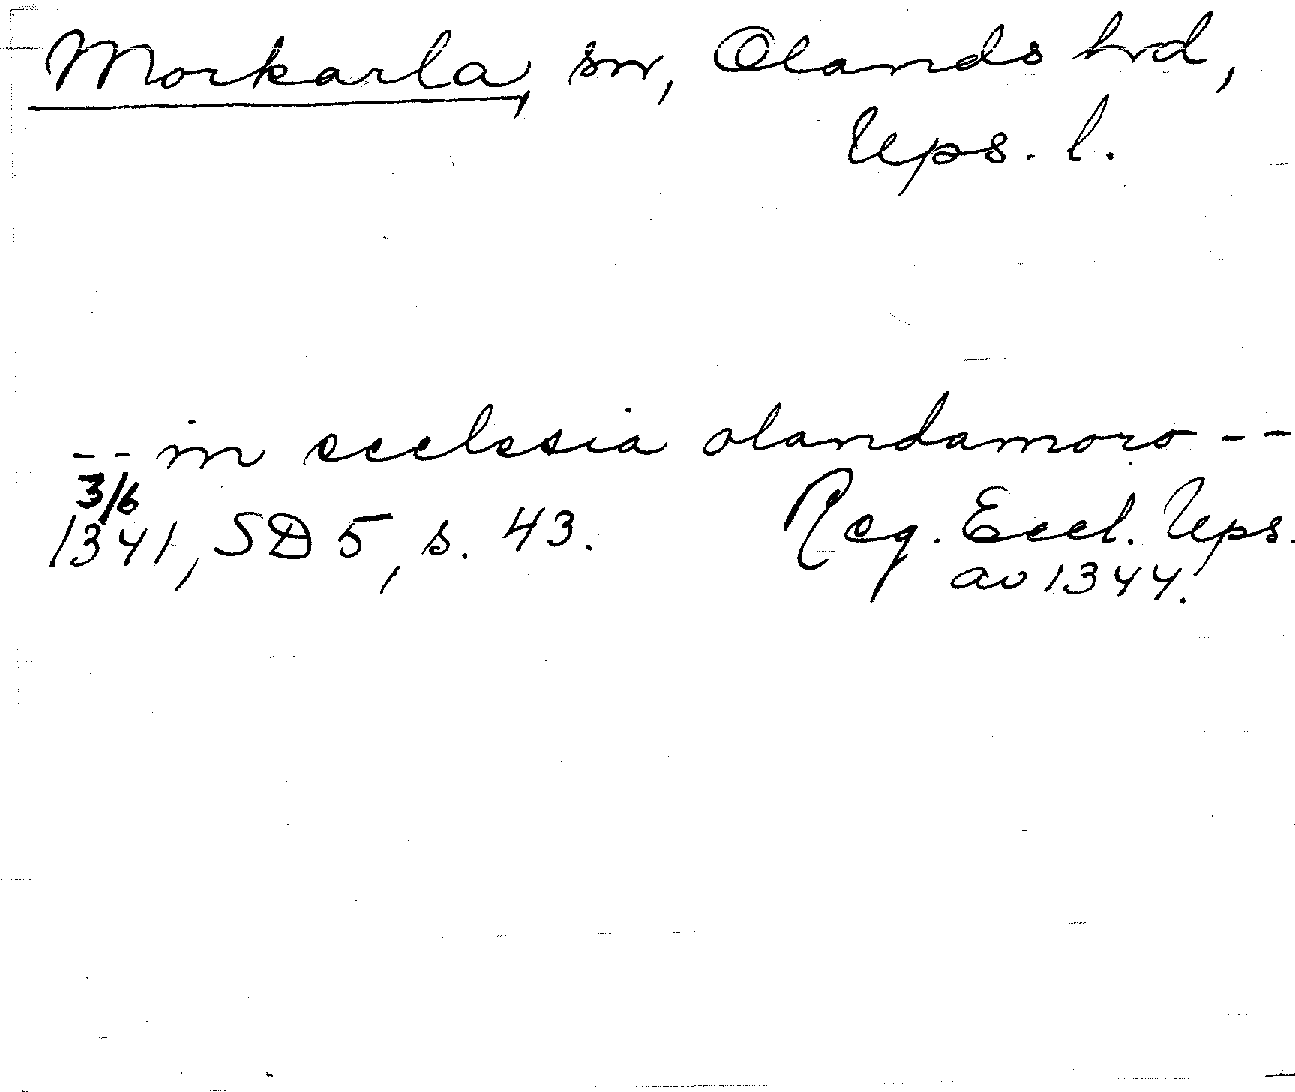 Morkarla, sn, Olands hrd,
Ups. l.
-- in ecclesia olandamoro --
3/6
1341, SD 5, s. 43. Reg. Eccl. Ups.
av 1344.